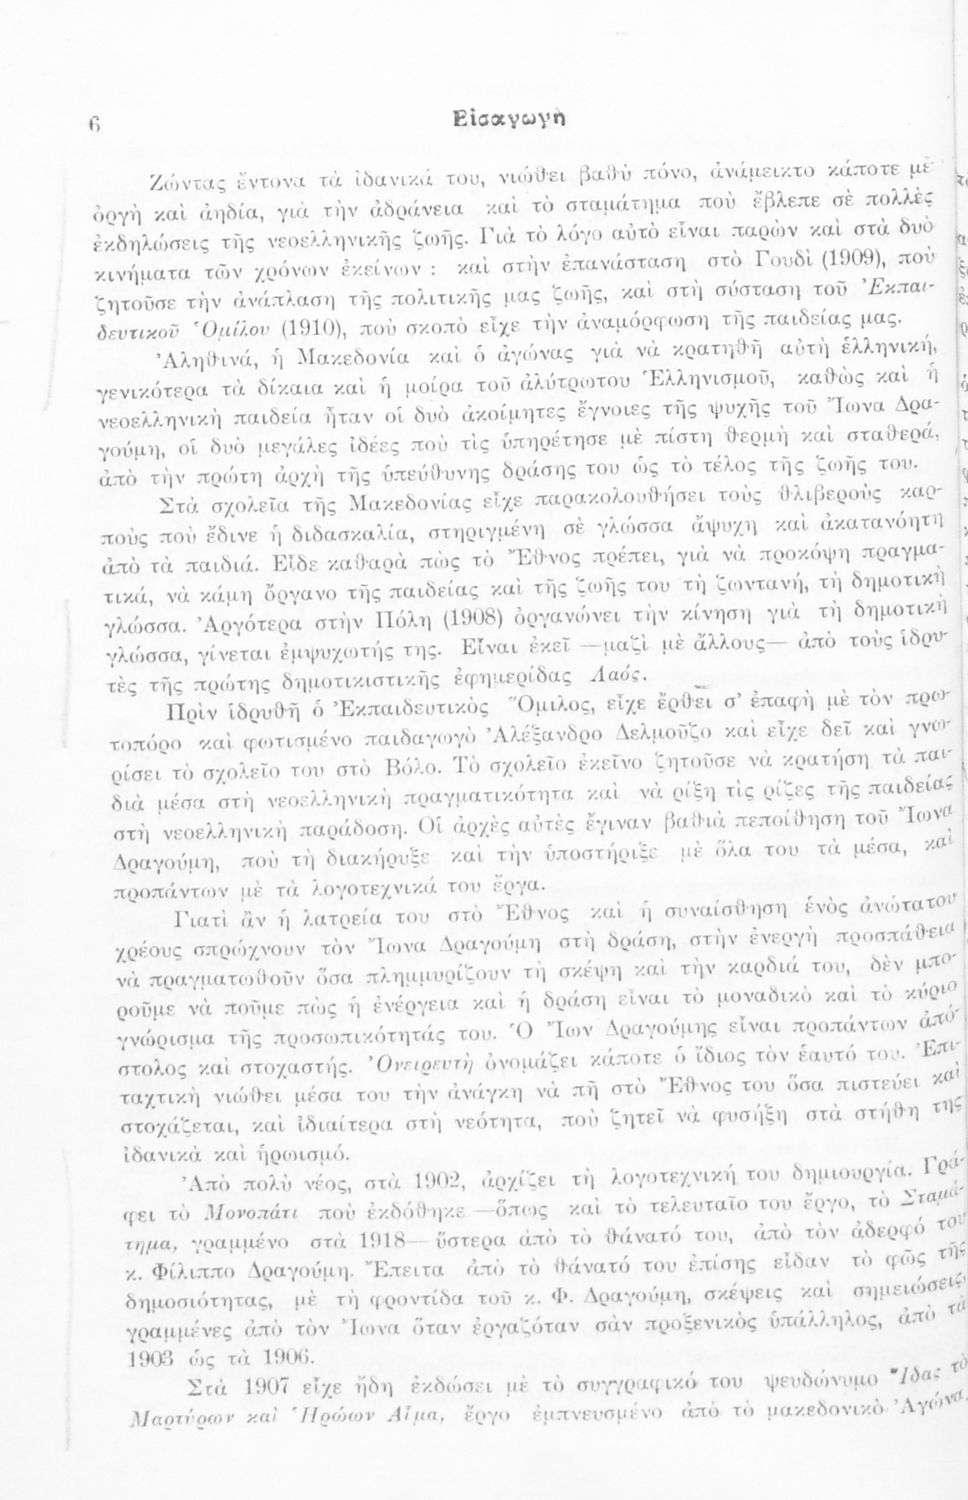 6 Εἰσαγωγὴ
Ζώντας ἔντονα τὰ ἰδανικά του, νιώθει βαθὺ πόνο, ἀνάμεικτο κάποτε μὲ
ὀργὴ καὶ ἀηδία, γιὰ τὴν ἀδράνεια καὶ τὸ σταμάτημα ποὺ ἔβλεπε σὲ πολλὲς
ἐκδηλώσεις τῆς νεοελληνικῆς ζωῆς. Γιὰ τὸ λόγο αὐτὸ εἶναι παρὼν καὶ στὰ δυὸ
κινήματα τῶν χρόνων ἐκείνων : καὶ στὴν ἐπανάσταση στὸ Γουδὶ (1909), ποὺ
ζητοῦσε τὴν ἀνάπλαση τῆς πολιτικῆς μας ζωῆς, καὶ στὴ σύσταση τοῦ Ἐκπαι-
δευτικοῦ Ὁμίλου (1910), ποὺ σκοπὸ εἶχε τὴν ἀναμόρφωση τῆς παιδείας μας.
Ἀληθινά, ἡ Μακεδονία καὶ ὁ ἀγώνας γιὰ νὰ κρατηθῆ αὐτὴ ἑλληνική,
γενικότερα τὰ δίκαια καὶ ἡ μοίρα τοῦ ἀλύτρωτου Ἑλληνισμοῦ, καθὼς καὶ ἡ
νεοελληνικὴ παιδεία ἦταν οἱ δυὸ ἀκοίμητες ἔγνοιες τῆς ψυχῆς τοῦ Ἴωνα Δρα-
γούμη, οἱ δυὸ μεγάλες ἰδέες ποὺ τὶς ὑπηρέτησε μὲ πίστη θερμὴ καὶ σταθερά,
ἀπὸ τὴν πρώτη ἀρχὴ τῆς ὑπεύθυνης δράσης του ὡς τὸ τέλος τῆς ζωῆς του.
Στὰ σχολεῖα τῆς Μακεδονίας εἶχε παρακολουθήσει τοὺς θλιβεροὺς καρ-
ποὺς ποὺ ἔδινε ἡ διδασκαλία, στηριγμένη σὲ γλώσσα ἄψυχη καὶ ἀκατανόητη
ἀπὸ τὰ παιδιά. Εἶδε καθαρὰ πὼς τὸ Ἔθνος πρέπει, γιὰ νὰ προκόψη πραγμα-
τικά, νὰ κάμη ὄργανο τῆς παιδείας καὶ τῆς ζωῆς του τὴ ζωντανή, τὴ δημοτικὴ
γλώσσα. Ἀργότερα στὴν Πόλη (1908) ὀργανώνει τὴν κίνηση γιὰ τὴ δημοτικὴ
γλώσσα, γίνεται ἐμψυχωτής της. Εἶναι ἐκεῖ —μαζὶ μὲ ἄλλους— ἀπὸ τοὺς ἱδρυ-
τὲς τῆς πρώτης δημοτικιστικῆς ἐφημερίδας Λαός.
Πρὶν ἱδρυθῆ ὁ Ἐκπαιδευτικὸς Ὅμιλος, εἶχε ἔρθει σ' ἐπαφὴ μὲ τὸν πρω-
τοπόρο καὶ φωτισμένο παιδαγωγὸ Ἀλέξανδρο Δελμοῦζο καὶ εἶχε δεῖ καὶ γνω-
ρίσει τὸ σχολεῖο του στὸ Βόλο. Τὸ σχολεῖο ἐκεῖνο ζητοῦσε νὰ κρατήση τὰ παι-
διὰ μέσα στὴ νεοελληνικὴ πραγματικότητα καὶ νὰ ρίξη τὶς ρίζες τῆς παιδείας
στὴ νεοελληνικὴ παράδοση. Οἱ ἀρχὲς αὐτὲς ἔγιναν βαθιὰ πεποίθηση τοῦ Ἴωνα
Δραγούμη, ποὺ τὴ διακήρυξε καὶ τὴν ὑποστήριξε μὲ ὅλα του τὰ μέσα, καὶ
προπάντων μὲ τὰ λογοτεχνικά του ἔργα.
Γιατὶ ἂν ἡ λατρεία του στὸ Ἔθνος καὶ ἡ συναίσθηση ἑνὸς ἀνώτατου
χρέους σπρώχνουν τὸν Ἴωνα Δραγούμη στὴ δράση, στὴν ἐνεργὴ προσπάθεια
νὰ πραγματωθοῦν ὅσα πλημμυρίζουν τὴ σκέψη καὶ τὴν καρδιά του, δὲν μπο-
ροῦμε νὰ ποῦμε πὼς ἡ ἐνέργεια καὶ ἡ δράση εἶναι τὸ μοναδικὸ καὶ τὸ κύριο
γνώρισμα τῆς προσωπικότητάς του. Ὁ Ἴων Δραγούμης εἶναι προπάντων ἀπό-
στολος καὶ στοχαστής. Ὀνειρευτὴ ὀνομάζει κάποτε ὁ ἴδιος τὸν ἑαυτό του. Ἐπι-
ταχτικὴ νιώθει μέσα του τὴν ἀνάγκη νὰ πῆ στὸ Ἔθνος του ὅσα πιστεύει καὶ
στοχάζεται, καὶ ἰδιαίτερα στὴ νεότητα, ποὺ ζητεῖ νὰ φυσήξη στὰ στήθη της
ἰδανικὰ καὶ ἡρωισμό.
Ἀπὸ πολὺ νέος, στὰ 1902, ἀρχίζει τὴ λογοτεχνική του δημιουργία. Γρά-
φει τὸ Μονοπάτι ποὺ ἐκδόθηκε —ὅπως καὶ τὸ τελευταῖο του ἔργο, τὸ Σταμά-
τημα, γραμμένο στὰ 1918— ὕστερα ἀπὸ τὸ θάνατό του, ἀπὸ τὸν ἀδερφό του
κ. Φίλιππο Δραγούμη. Ἔπειτα ἀπὸ τὸ θάνατό του ἐπίσης εἶδαν τὸ φῶς τῆς
δημοσιότητας, μὲ τὴ φροντίδα τοῦ κ. Φ. Δραγούμη, σκέψεις καὶ σημειώσεις,
γραμμένες ἀπὸ τὸν Ἴωνα ὅταν ἐργαζόταν σὰν προξενικὸς ὑπάλληλος, ἀπὸ τὰ
1903 ὡς τὰ 1906.
Στὰ 1907 εἶχε ἤδη ἐκδώσει μὲ τὸ συγγραφικό του ψευδώνυμο Ἴδας τὸ
Μαρτύρων καὶ Ἡρώων Αἷμα, ἔργο ἐμπνευσμένο ἀπὸ τὸ μακεδονικὸ Ἀγώνα.